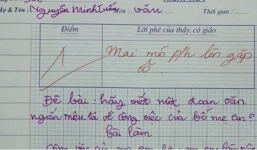 Họ & Tên: Nguyễn Minh Tuấn Môn: văn Thời gian:
Điểm Lời phê của thầy, cô giáo
Mai mẹ ph lên gặp
cô
Đề bài: hãy viết một đoạn văn
ngắn nêu tả về công việc của bố mẹ em
Bài làm